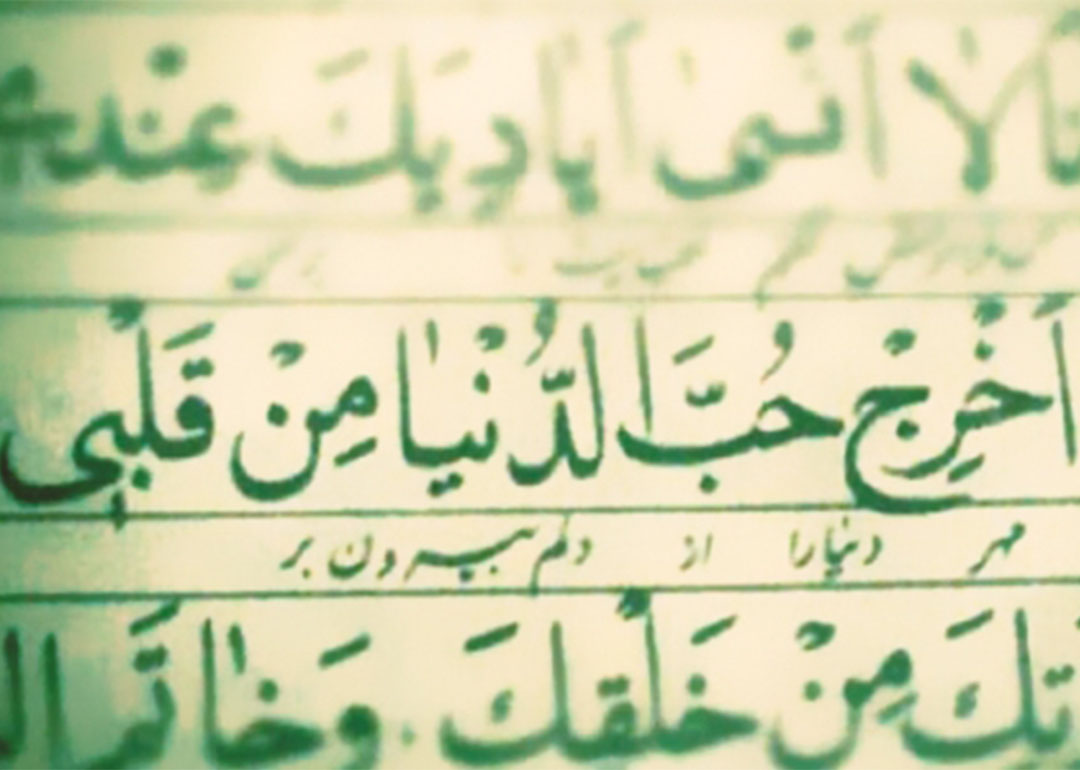 أَنَا لَا أَنْسىٰ أَيَادِيَكَ عِنْدى
أَخْرِجْ حُبَّ الدُّنْيٰا مِنْ قَلْبى
مهر دنیارا از دلم بیرون بر
مِنْ خَلْقِكَ وَخٰاتَمِ